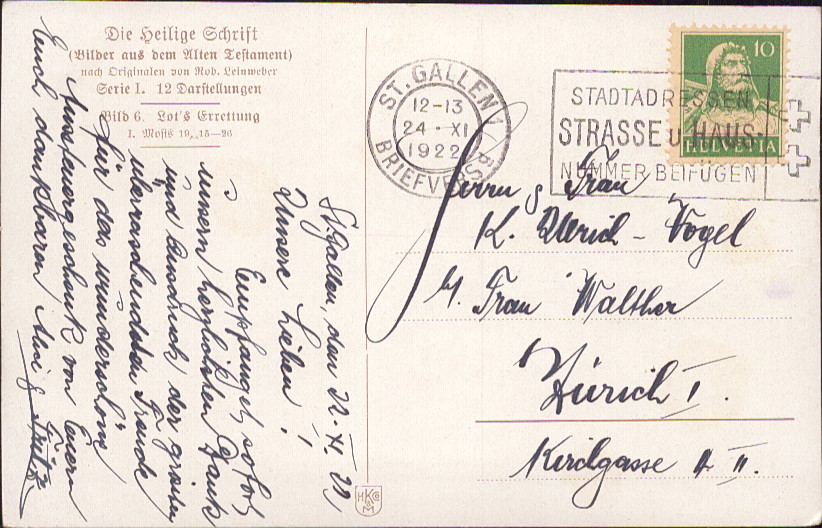 Die Heilige Schrift
(Bilder aus dem Alten Testament)
nach Originalen von Rob. Leinweber
Serie I. 12 Darstellungen
Bild 6. Lot's Errettung
I. Mosis 19, 15—26
St. Gallen, den 22. XI. 22
Unsere Lieben!
Empfanget sofort
unsern herzlichsten Dank
und Ausdruck der größten
überraschendsten Freude
für das wunderschöne
von Euern
Euch dankbaren
& Fritz
ST. GALLEN 1
12-13
24·XI
1922
BRIEFVERSD
STADTADRESSEN
STRASSE U. HAUS-
NUMMER BEIFÜGEN
10
HELVETIA
Herrn & Frau
K. Ulrich - Vogel
b/. Frau Walther
Zürich I.
Kirchgasse
HKCo
M